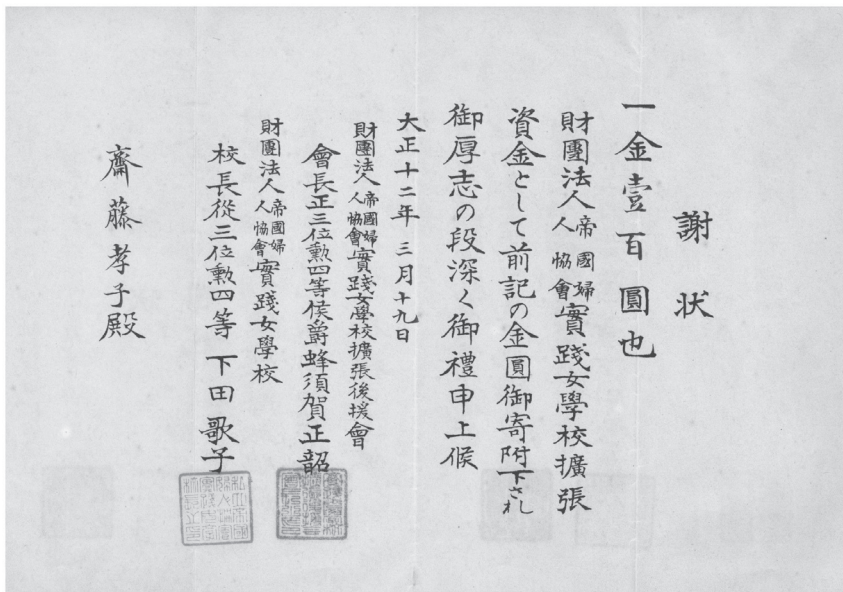 謝状
一金壹百圓也
財團法人帝國婦人協會實踐女學校擴張
資金として前記の金圓御寄附下され
御厚志の段深く御禮申上候
大正十二年三月十九日
財團法人帝國婦人協會實踐女學校擴張後援會
會長正三位勲四等侯爵蜂須賀正韶
財團法人帝國婦人協會實踐女學校
校長從三位勲四等下田歌子
齋藤孝子殿